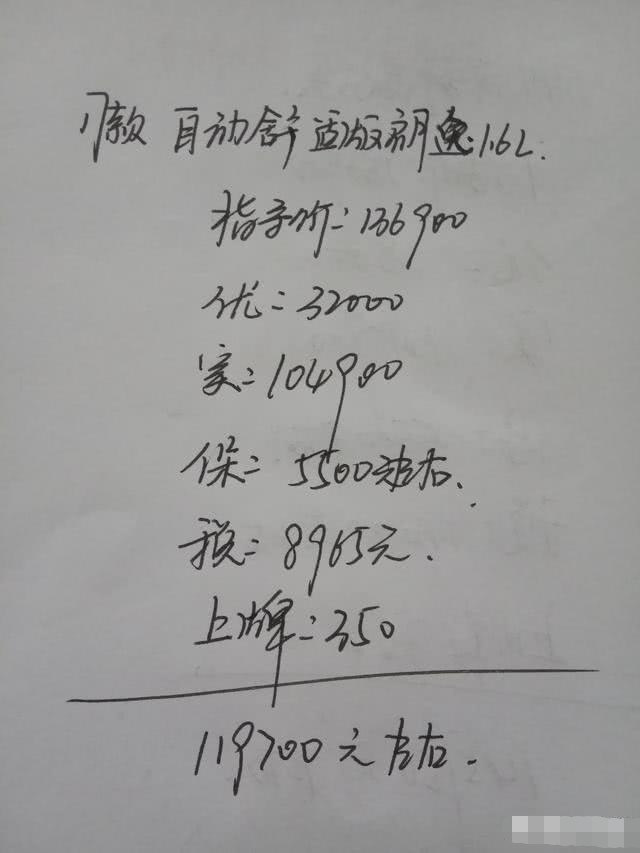 17款 自动舒适版朗逸1.6L.
指导价:136900
优:32000
实:104900
保:5500左右.
税:8965元.
上牌:350
119700元左右.